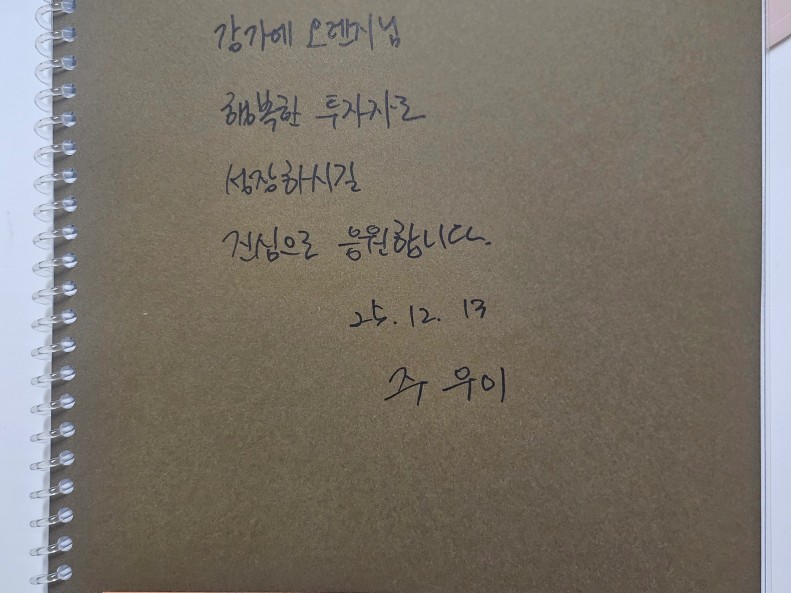 강가에 오렌지님
행복한 투자자로
성장하시길
진심으로 응원합니다.
25. 12. 13
주우이